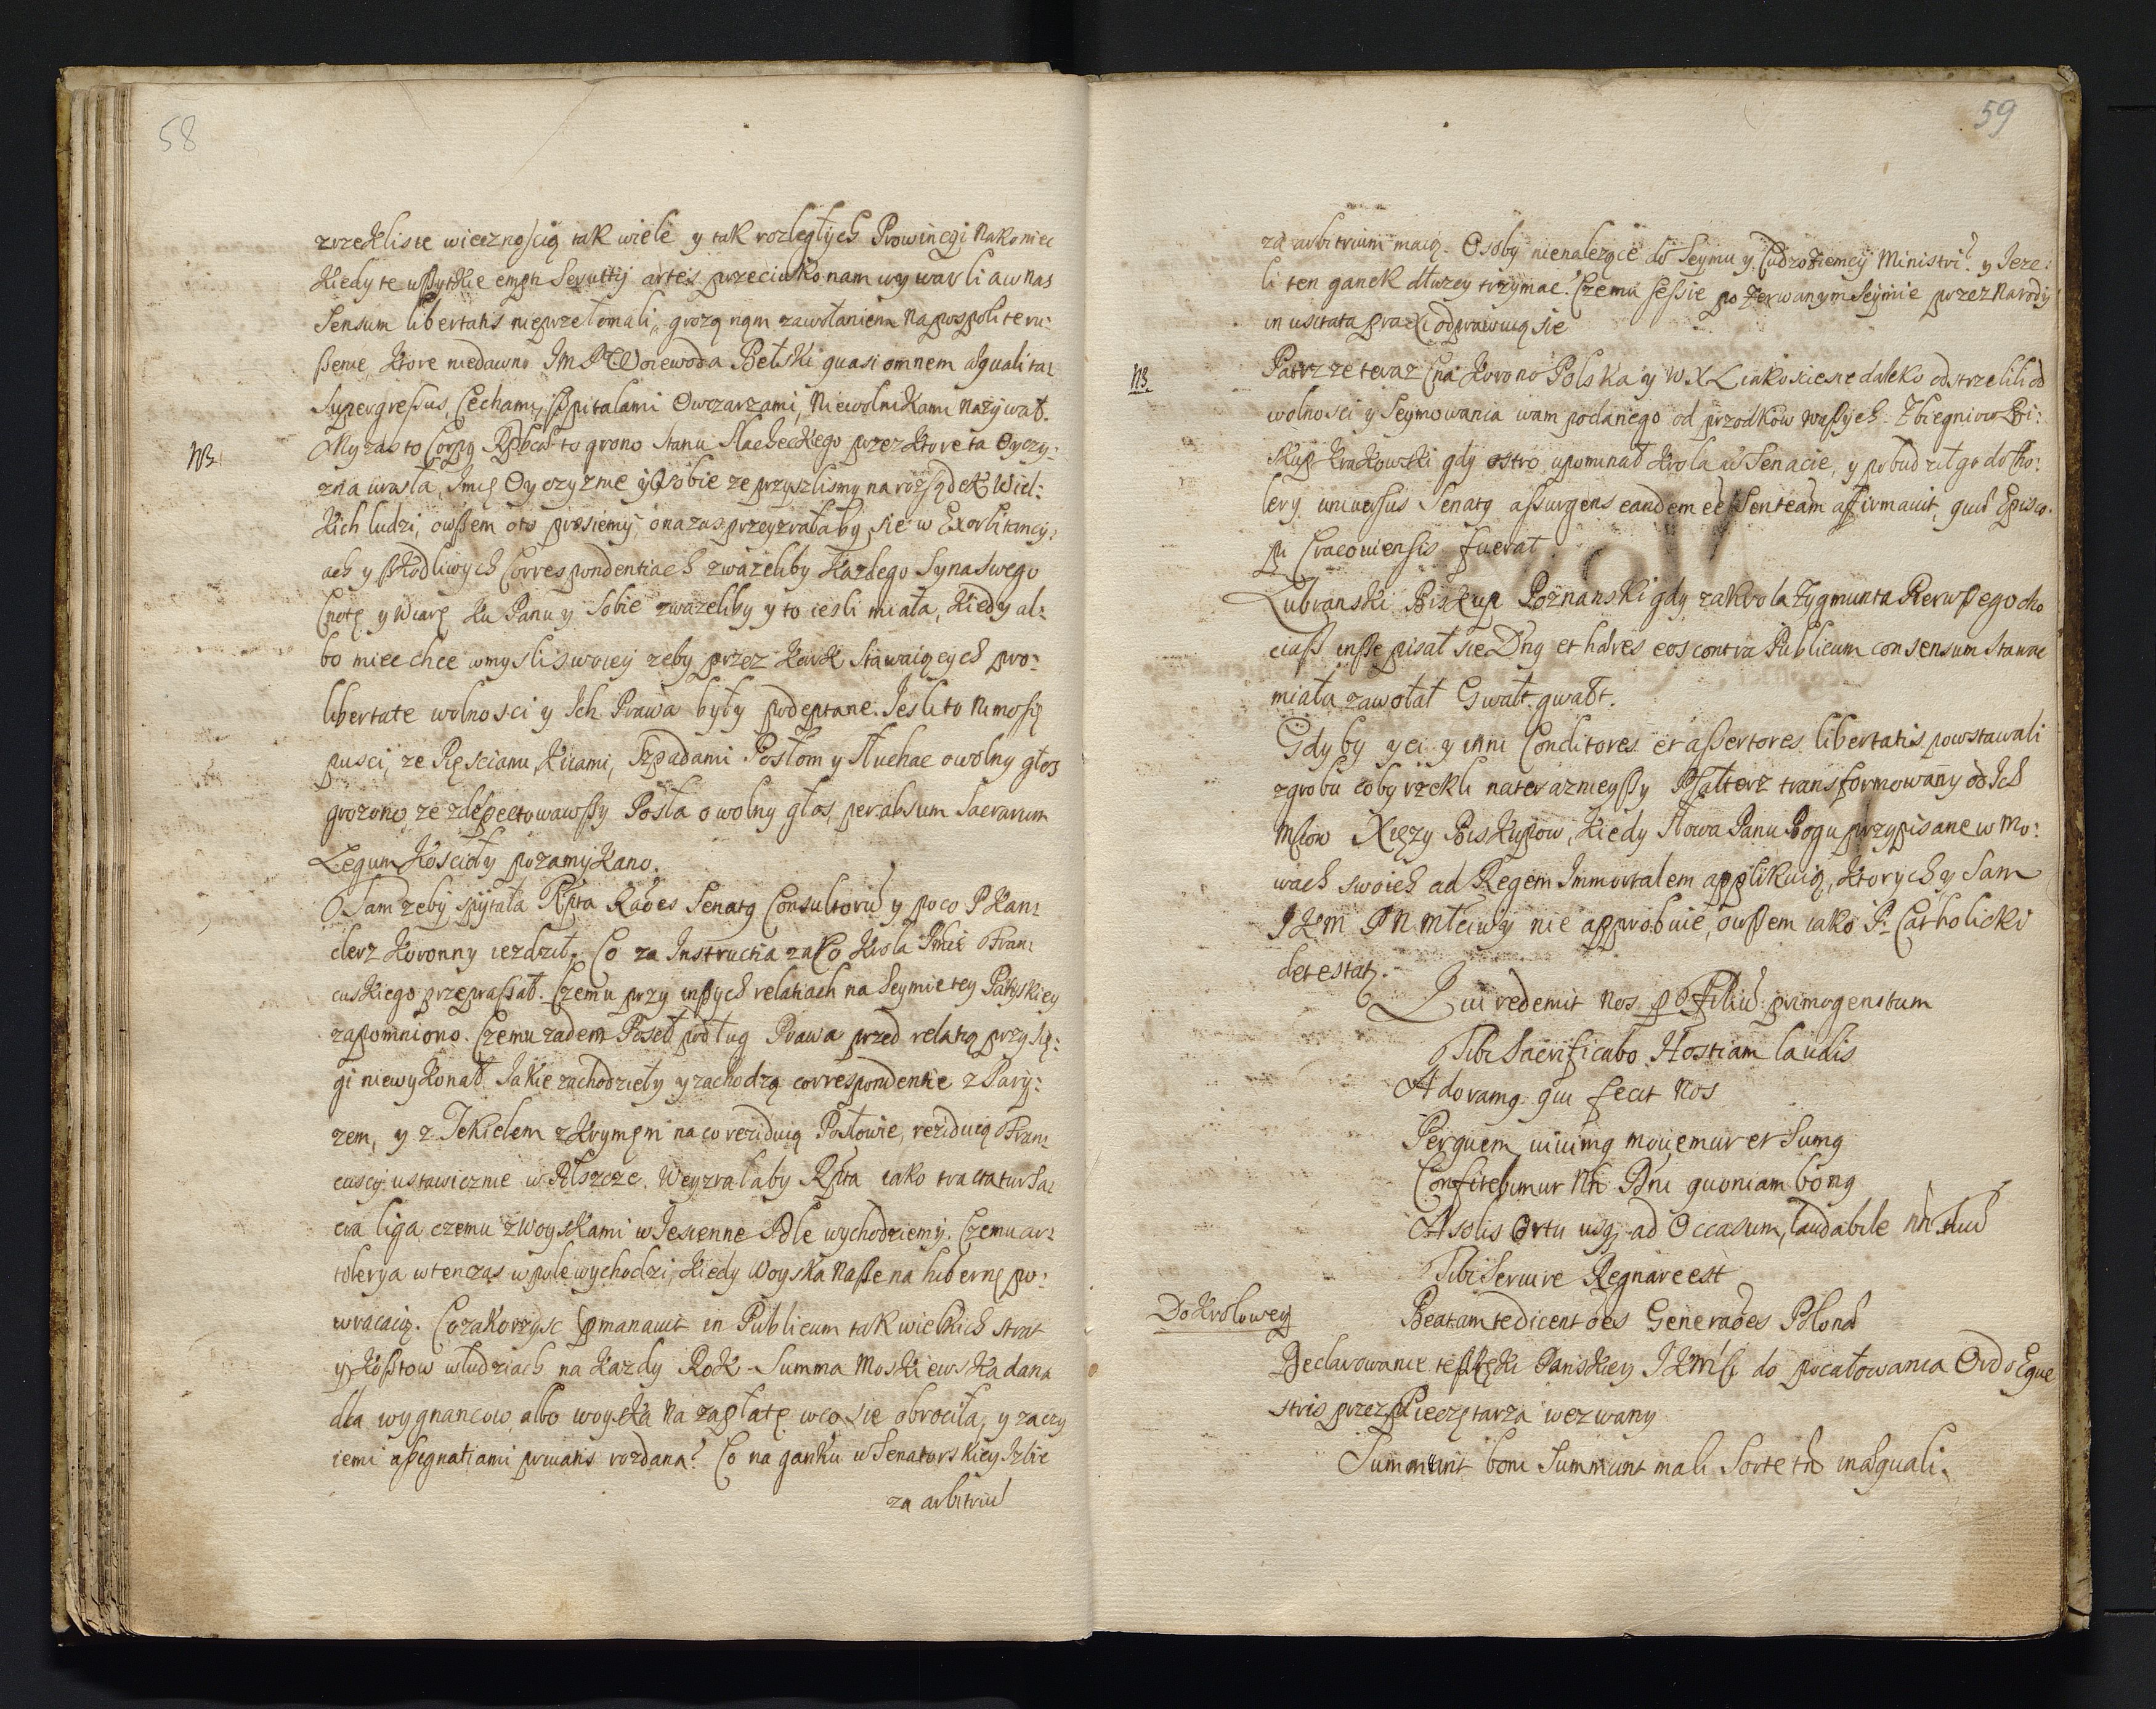 58
zrzekliste wiecznością tak wiele y tak rozległych Prowincyi Nakoniec
Kiedy te wszytkie empti Seruitij artes przeciwko nam wywarli a w nas
Sensum libertatis nieprzełomali, grożą nąm zawołaniem Na pospolite ru:
szenie, ktore niedawno Im P Woiewoda Bełski quasi omnem æqualitaz
Supergressus, Cechami, szpitalami Owczarzami, Niewolnikami Nazywał.
NB.
My zas to Corpg to grono Stanu Slacheckiego przez ktore ta Oyczy:
zna urasta, Imię Oyczyzne y Osobie ze przyszlismy na rozsądek Wiel:
kich ludzi, owszem oto prosiemy, ona zas przeyzrałaby sie w Exorbitancy:
ach y szkodliwych Correspondentiach zwazeliby kazdego Syna swego
Cnotę y Wiarę ku Panu y Sobie zwazeliby y to iesli miała, kiedy al:
bo miec chce w mysli swoiey zeby przez kark Stawaiących pro:
libertate wolnosci y Ich Prawa były podeptane. Iesli to Nimo się
pusci, ze Pięsciami, Kiiami, Szpadami Posłom y Sluchac o wolny głos
grozono, ze zdespectowawszy Posła o wolny głos, per abusum Sacrarum
Legum Koscioły pozamykano.
Sam zeby spytała Rpta Raões Senatg Consultorū y po co P Kan:
clerz Koronny iezdził, Co za Instructia za Co Krola Imći Fran:
cuskiego przeprassał. Czemu przy inszych relatiach na Seymie tey Paryskiey
zapomniono. Czemu zaden Poseł podług Prawa przed relatią przysię:
gi niewykonał. Iakie zachodzieły y zachodzą correspondentie z Pary:
zem, y z Tekielem z Krymęm na co reziduią Posłowie, reziduią Fran:
cuscy ustawicznie w Polszcze. Weyzrałaby Rpta iako tractatur Sa:
cra liga czemu z Woyskami w Iesienne Pole wychodziemy. Czemu ar:
tolerya wtenczas w pole wychodzi, kiedy Woyska Nasze na hibernę po:
wracaią. Co za korzysc Emanauit in Publicum tak wielkich strat
y kosztow w ludziach na kazdy Rok. Summa Moskiewska dana
dla wygnancow albo woyska na zapłatę w co sie obrociła, y za czy
iemi assegnatiami priuatis rozdana? Co na ganku w Senatorskiey Izbie
za arbitriū
59
za arbitrium maią. Osoby nienalezące do Seymu y Cudzoziemcy Ministri? y Ieze:
li ten ganek dłuzey trzymac. Czemu sessie po zerwanym Seymie przez Narody
in usitata praxi odprawuią sie
NB.
Patrz ze teraz Cna Korono Polska y W. X L iakoscie sie daleko odstrzelili od
wolnosci y Seymowania wam podanego od przodkow waszych. Zbigniew Bi:
skup Krakowski gdy ostro upominał Krola w Senacie, y pobudził go do Cho:
lery uniuersus Senatg assurgens eandem eē Senteām affirmauit, quæ Episco:
pi Cracouiensis fuerat.
Lubranski Biskup Poznanski gdy za Krola Zygmunta Pierwszego cho
ciasz insze pisał sie Dng et hæres eos contra Publicum consensum Stanac
miała zawołał Gwałt, gwałt.
Gdyby y ci y inni Conditores et assertores libertatis powstawali
z grobu coby rzekli na teraznieyszy Psałterz transformowany od Ich
Mciow Xięzy Biskupow, kiedy słowa Panu Bogu przypisane w Mo:
wach swoich ad Regem Immortalem applikuią, ktorych y Sam
I K m P N Mlciwy nie approbuie, owszem iako P. Catholicki
detestatr.
Qui redemit Nos p Filiū primogenitum
Tibi Sacrificabo Hostiam laudis
Adoramg qui fecit Nos
Per quem uiuimg mouemur et Sumg
Confitebimur Nri Dni quoniam bong
A Solis Ortu usqȝ ad Occasum, laudabile nñ Tuū
Tibi Seruire Regnare est
Do Krolowey
Beatam te dicent oēs Generaōes Polonæ
Declarowanie te Ręki Panskiey I K Mści do pocałowania Ordo Eque
stris przez Pieczętarza wezwany
Summunt boni Summunt mali Sorte tñ inæquali.